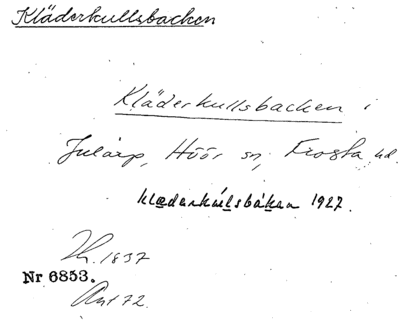 Kläderkullsbacken
Kläderkullsbacken i
Julárp, Höör sn, Frosta hd.
klæderkúlsbákan 1927.
1837
Nr 6853.
72.